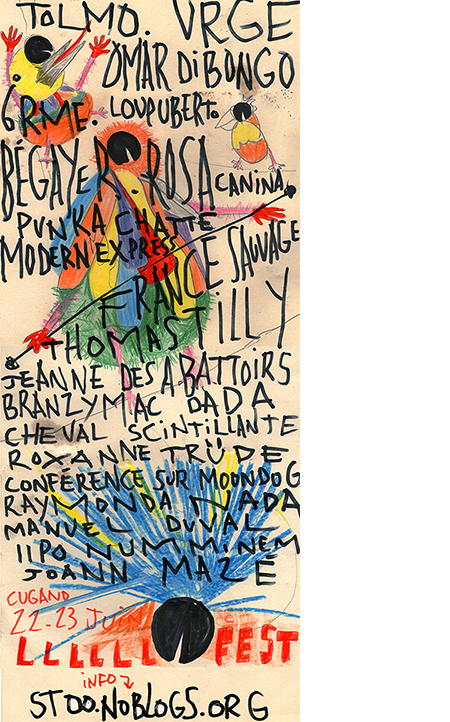 TOLMO. URGE
OMAR DiBONGO
GRME. LOUPUBERTO
BÉGAYER ROSA CANINA
PUNKA CHATTE
MODERN EXPRESS
FRANCE SAUVAGE
THOMAS TILLY
JEANNE DES ABATTOIRS
BRANZYMAC DADA
CHEVAL SCINTILLANTE
ROXANNE TRÜDE
CONFÉRENCE SUR MOONDOG
RAYMONDA NADA
MANUEL DUVAL
IIPO NUMMINEM
JOANN MAZÉ
CUGAND
22-23 Juin
LLLLLL FEST
iNFO
STOO.NOBLOGS.ORG